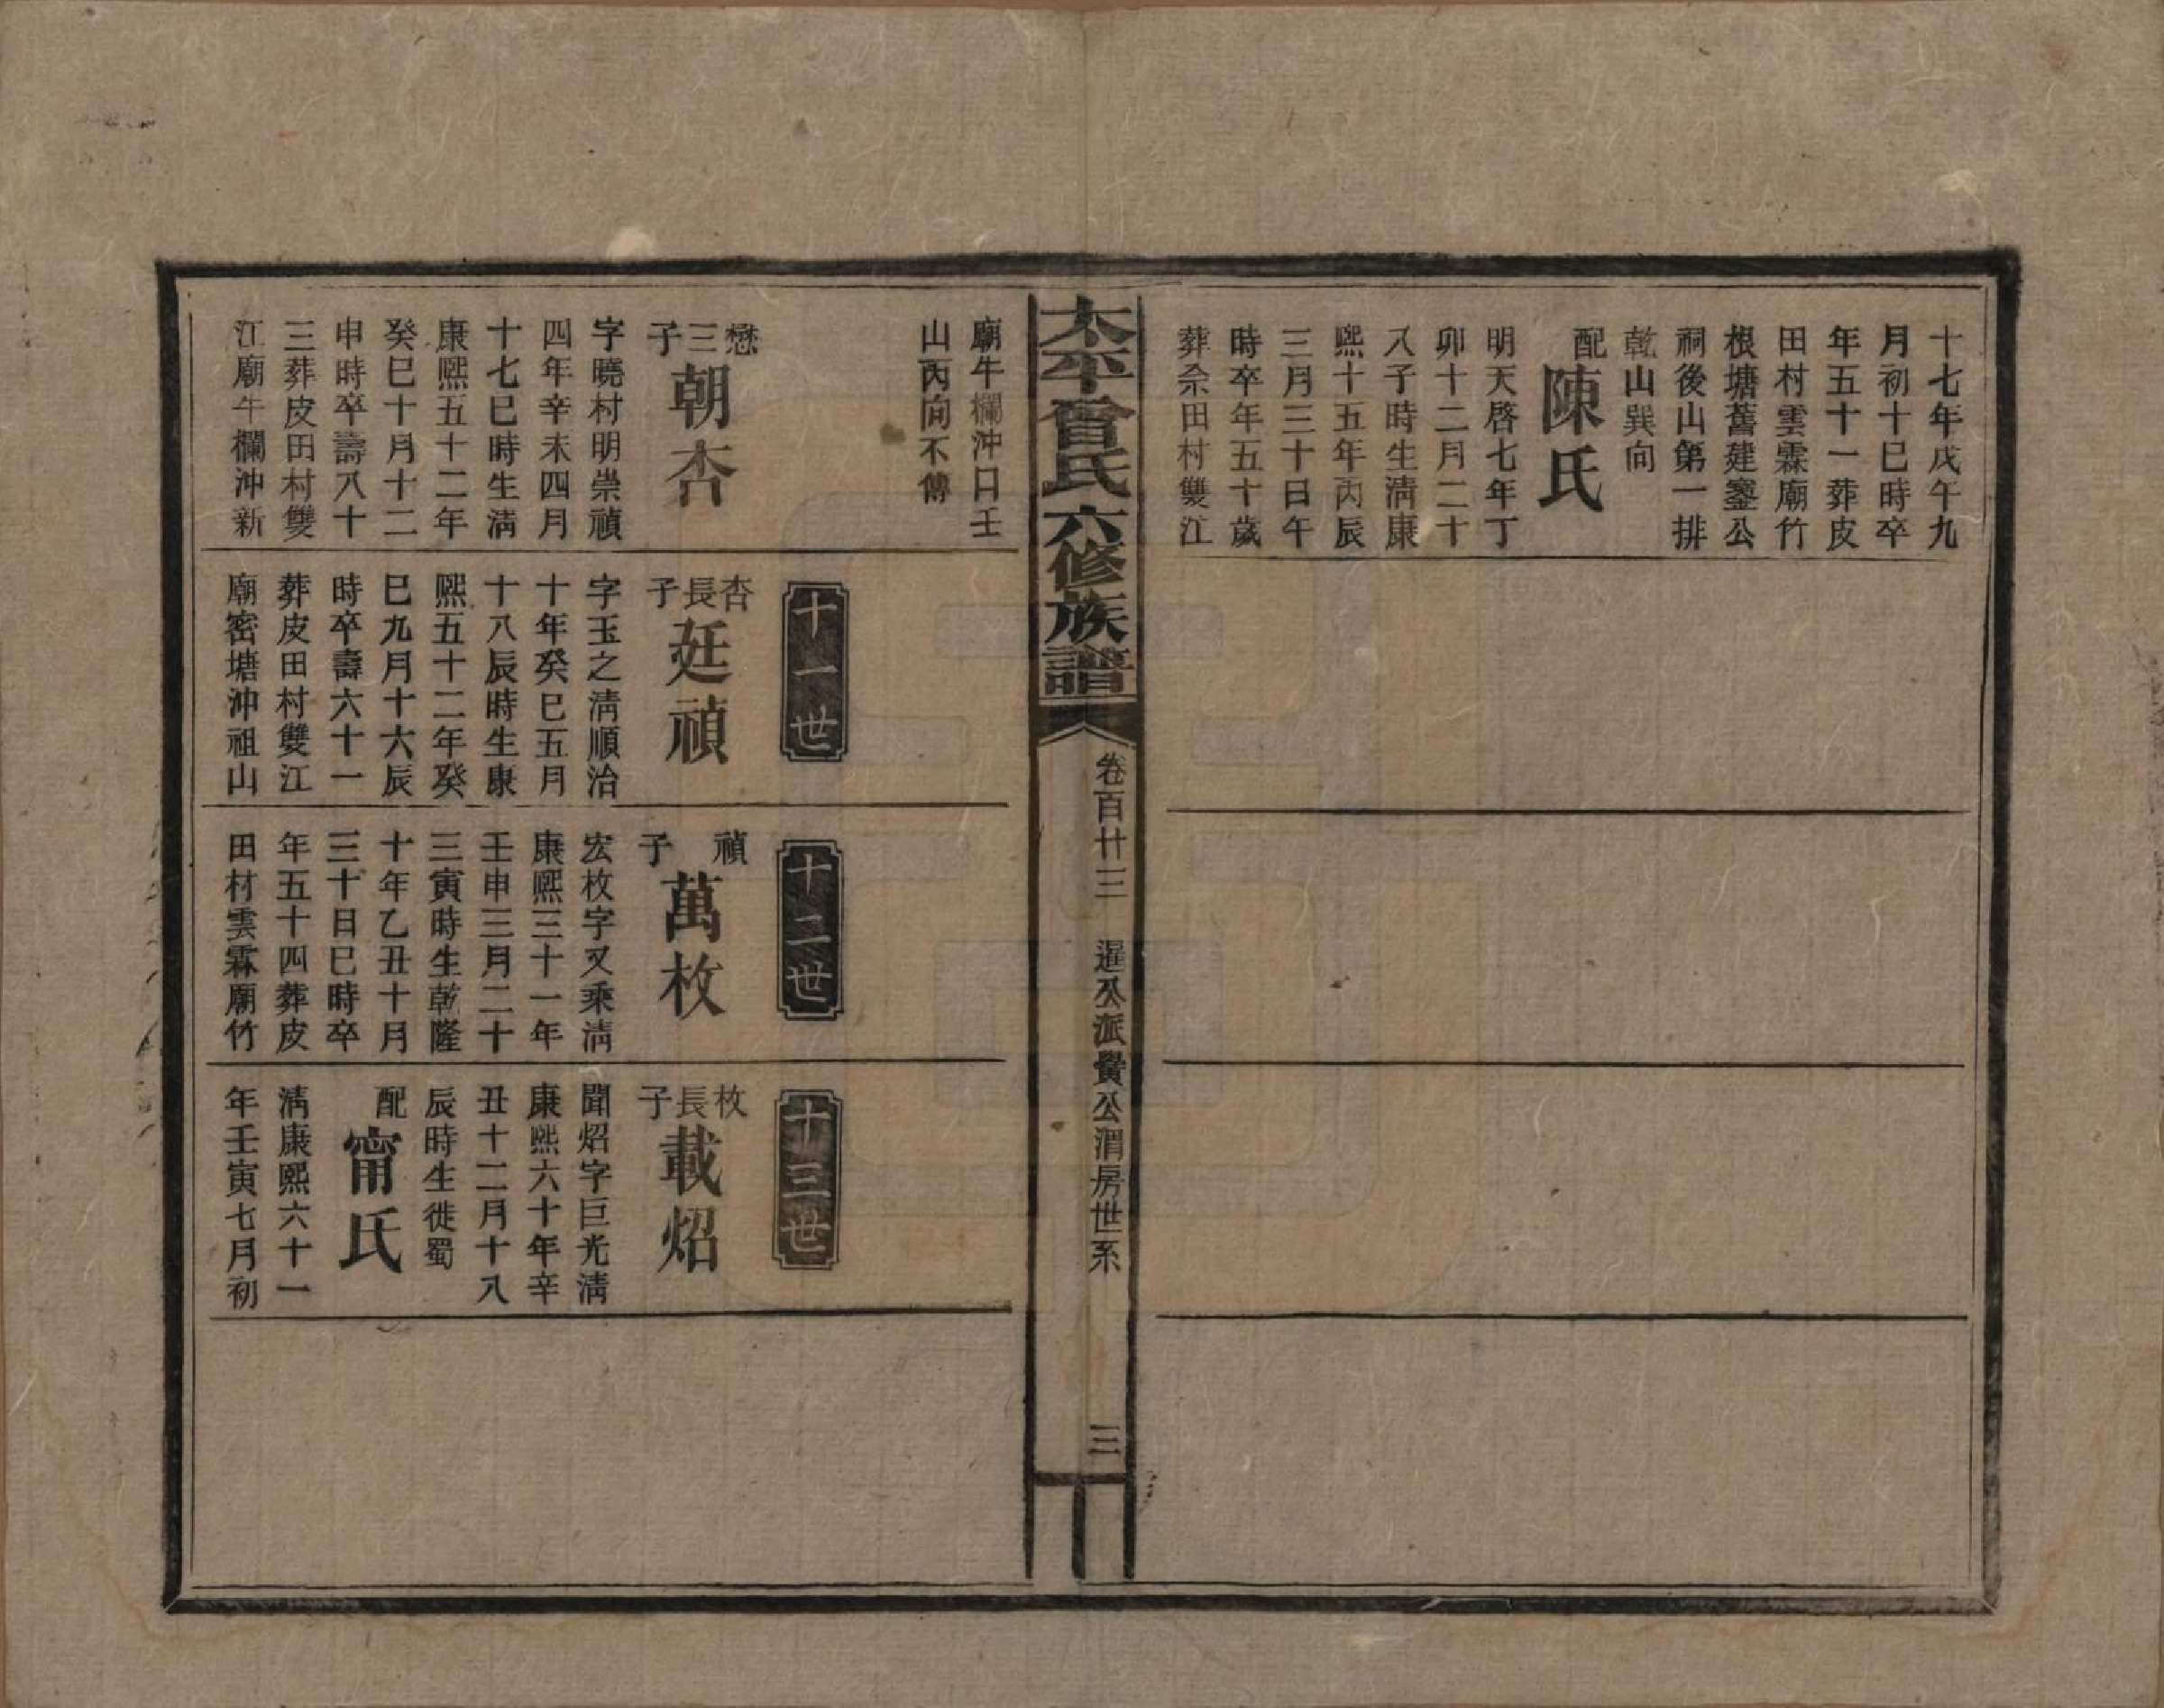 十七年戊午九
月初十巳時卒
年五十一葬皮
田村雲霖廟竹
根塘舊建鑾公
祠後山第一排
乾山巽向
配陳氏
明天啓七年丁
卯十二月二十
八子時生淸康
熙十五年丙辰
三月三十日午
時卒年五十歲
葬佘田村雙江
太平曾氏六修族譜
卷百廿三 暹公派黌公渭房世系
三
廟牛欄沖口壬
山丙向不傳
懋三子朝杏
字曉村明崇禎
四年辛未四月
十七巳時生淸
康熙五十二年
癸巳十月十二
申時卒壽八十
三葬皮田村雙
江廟牛欄沖新
十一世
杏長子廷禎
字玉之淸順治
十年癸巳五月
十八辰時生康
熙五十二年癸
巳九月十六辰
時卒壽六十一
葬皮田村雙江
廟密塘沖祖山
十二世
禎子萬枚
宏枚字又乘淸
康熙三十一年
壬申三月二十
三寅時生乾隆
十年乙丑十月
三十日巳時卒
年五十四葬皮
田村雲霖廟竹
十三世
枚長子載炤
聞炤字巨光淸
康熙六十年辛
丑十二月十八
辰時生徙蜀
配甯氏
淸康熙六十一
年壬寅七月初